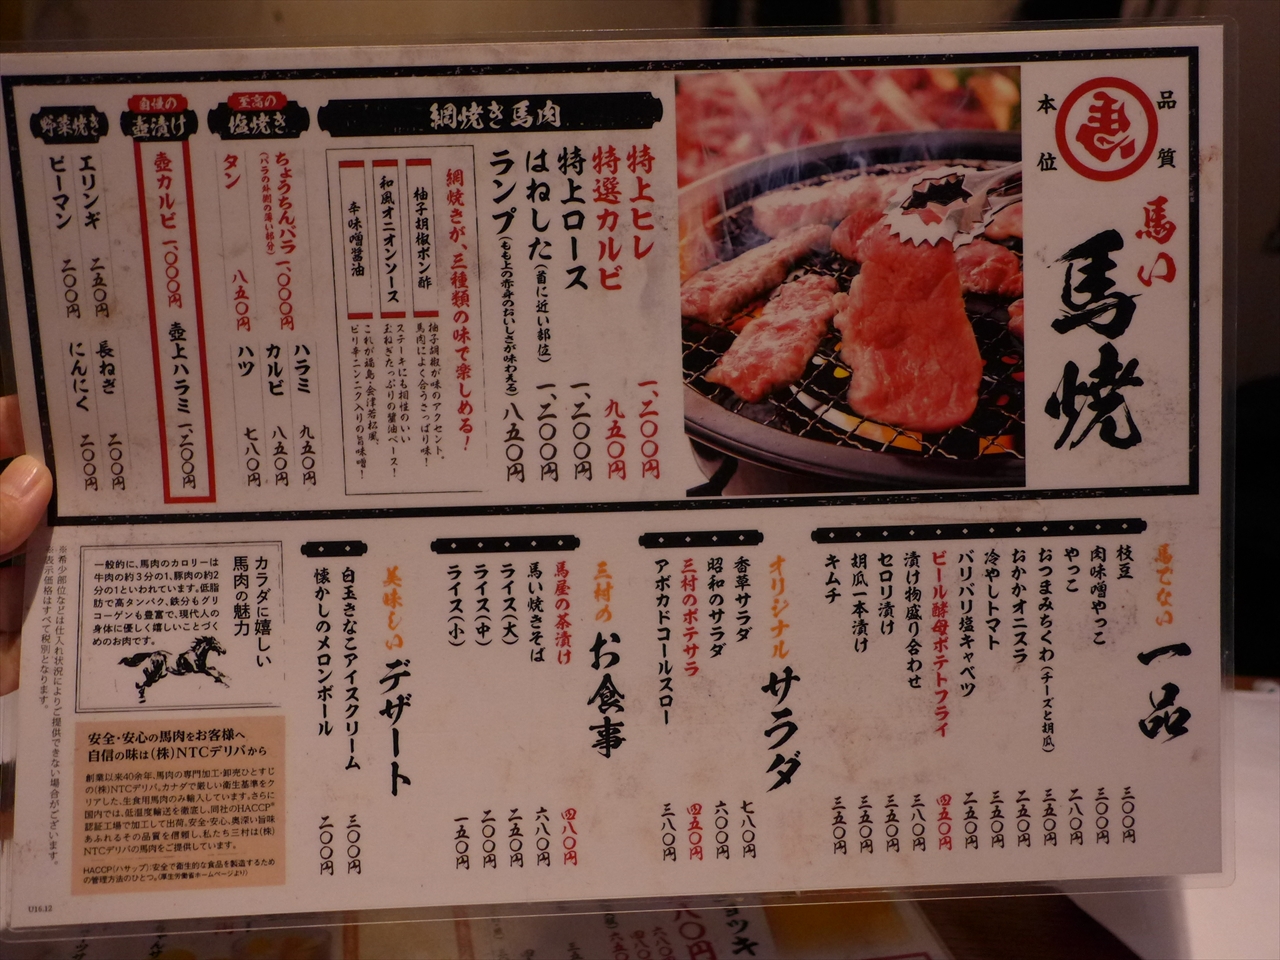 品質
本位
馬い
馬焼
網焼き馬肉
特上ヒレ 一、二〇〇円
特選カルビ 九五〇円
特上ロース 一、二〇〇円
はねした(首に近い部位) 一、二〇〇円
ランプ(もも上の赤身のおいしさが味わえる) 八五〇円
網焼きが、三種類の味で楽しめる!
柚子胡椒ポン酢
柚子胡椒が味のアクセント。
馬肉によく合うさっぱり味!
和風オニオンソース
ステーキにも相性のいい
玉ねぎたっぷりの醤油ベース!
辛味噌醤油
これが福島・会津若松風、
ピリ辛ニンニク入りの旨味噌!
至高の
塩焼き
ちょうちんバラ 一、〇〇〇円
(バラの外側の薄い部分)
タン 八五〇円
ハラミ 九五〇円
カルビ 八五〇円
ハツ 七八〇円
自慢の
壺漬け
壺カルビ 一、〇〇〇円
壺上ハラミ 一、二〇〇円
野菜焼き
エリンギ 二五〇円
ピーマン 二〇〇円
長ねぎ 二〇〇円
にんにく 二〇〇円
馬でない
一品
枝豆 三〇〇円
肉味噌やっこ 三〇〇円
やっこ 二八〇円
おつまみちくわ(チーズと胡瓜) 三五〇円
おかかオニスラ 二五〇円
冷やしトマト 三五〇円
パリパリ塩キャベツ 二五〇円
ビール酵母ポテトフライ 四五〇円
漬け物盛り合わせ 三八〇円
セロリ漬け 三五〇円
胡瓜一本漬け 三五〇円
キムチ 三五〇円
オリジナル
サラダ
香草サラダ 七八〇円
昭和のサラダ 六〇〇円
三村のポテサラ 四五〇円
アボカドコールスロー 三八〇円
三村の
お食事
馬屋の茶漬け 四八〇円
馬い焼きそば 六八〇円
ライス(大) 二五〇円
ライス(中) 二〇〇円
ライス(小) 一五〇円
美味しい
デザート
白玉きなこアイスクリーム 三〇〇円
懐かしのメロンボール 二〇〇円
カラダに嬉しい
馬肉の魅力
一般的に、馬肉のカロリーは
牛肉の約3分の1、豚肉の約2
分の1といわれています。低脂
肪で高タンパク、鉄分もグリ
コーゲンも豊富で、現代人の
身体に優しく嬉しいことづく
めのお肉です。
安全・安心の馬肉をお客様へ
自信の味は(株)NTCデリバから
創業以来40余年、馬肉の専門加工・卸売ひとすじ
の(株)NTCデリバ。カナダで厳しい衛生基準をク
リアした、生食用馬肉のみ輸入しています。さらに
国内では、低湿度輸送を徹底し、同社のHACCP※
認証工場で加工して出荷。安全・安心、奥深い旨味
あふれるその品質を信頼し、私たち三村は(株)
NTCデリバの馬肉をご提供しています。
HACCP(ハサップ):安全で衛生的な食品を製造するため
の管理方法のひとつ。(厚生労働省ホームページより)
※希少部位などは仕入れ状況によりご提供できない場合がございます。
※表示価格はすべて税別となります。
U16.12